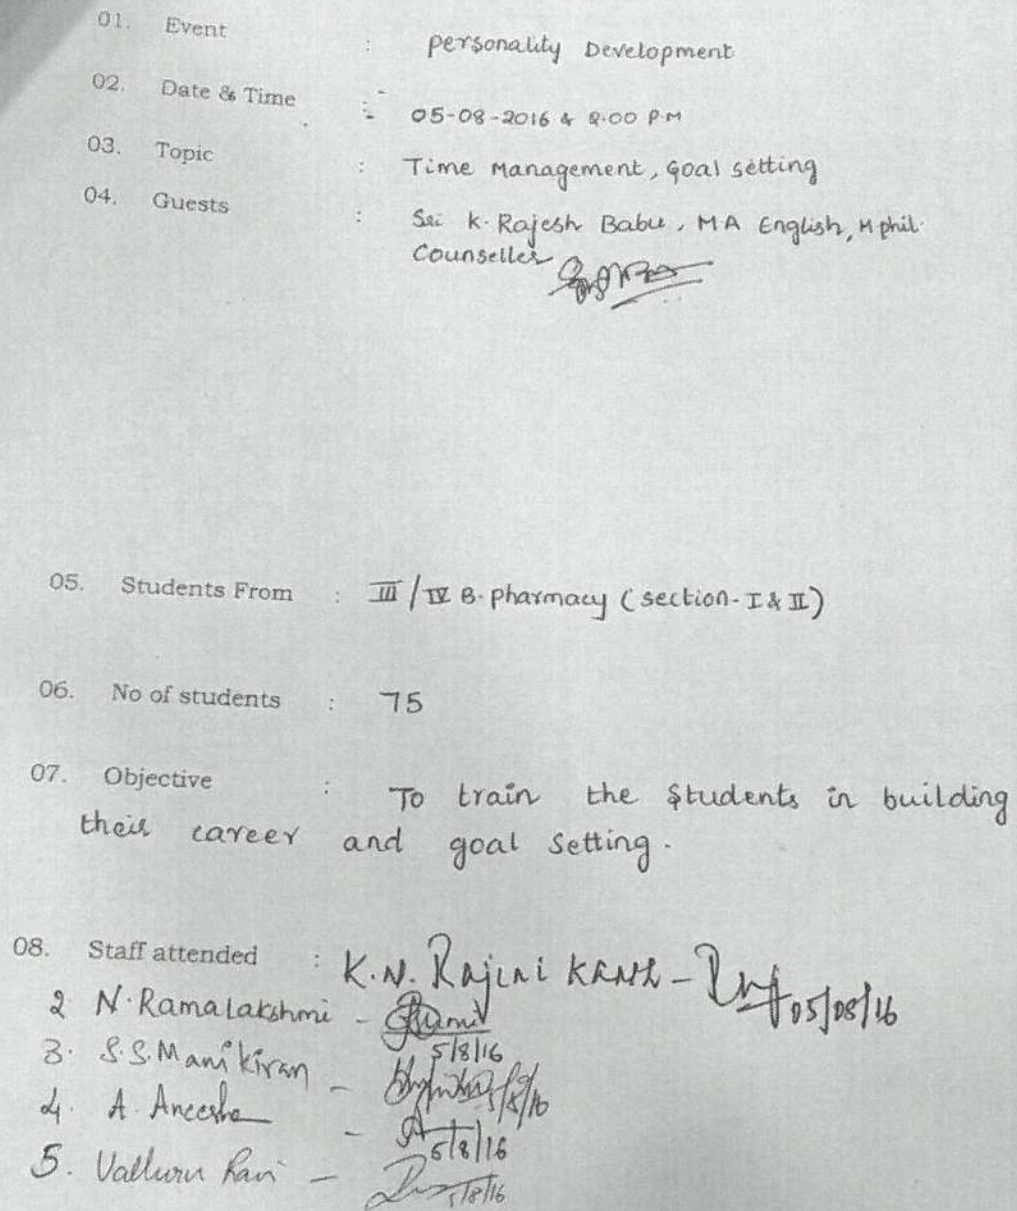 01. Event : Personality Development
02. Date & Time : 05-08-2016 & 2.00 P.M
03. Topic : Time Management, Goal setting
04. Guests : Sri K. Rajesh Babu, MA English, M phil.
Counseller
05. Students From : III/IV B. pharmacy (section-I & II)
06. No of students : 75
07. Objective : To train the students in building
their career and goal setting.
08. Staff attended : K.N. Rajini Kanth - 05/08/16
2 N. Ramalakshmi -
5/8/16
3. S.S. Manikiran - 5/8/16
4. A. Aneesha -
5/8/16
5. Valluru Ravi - 5/8/16